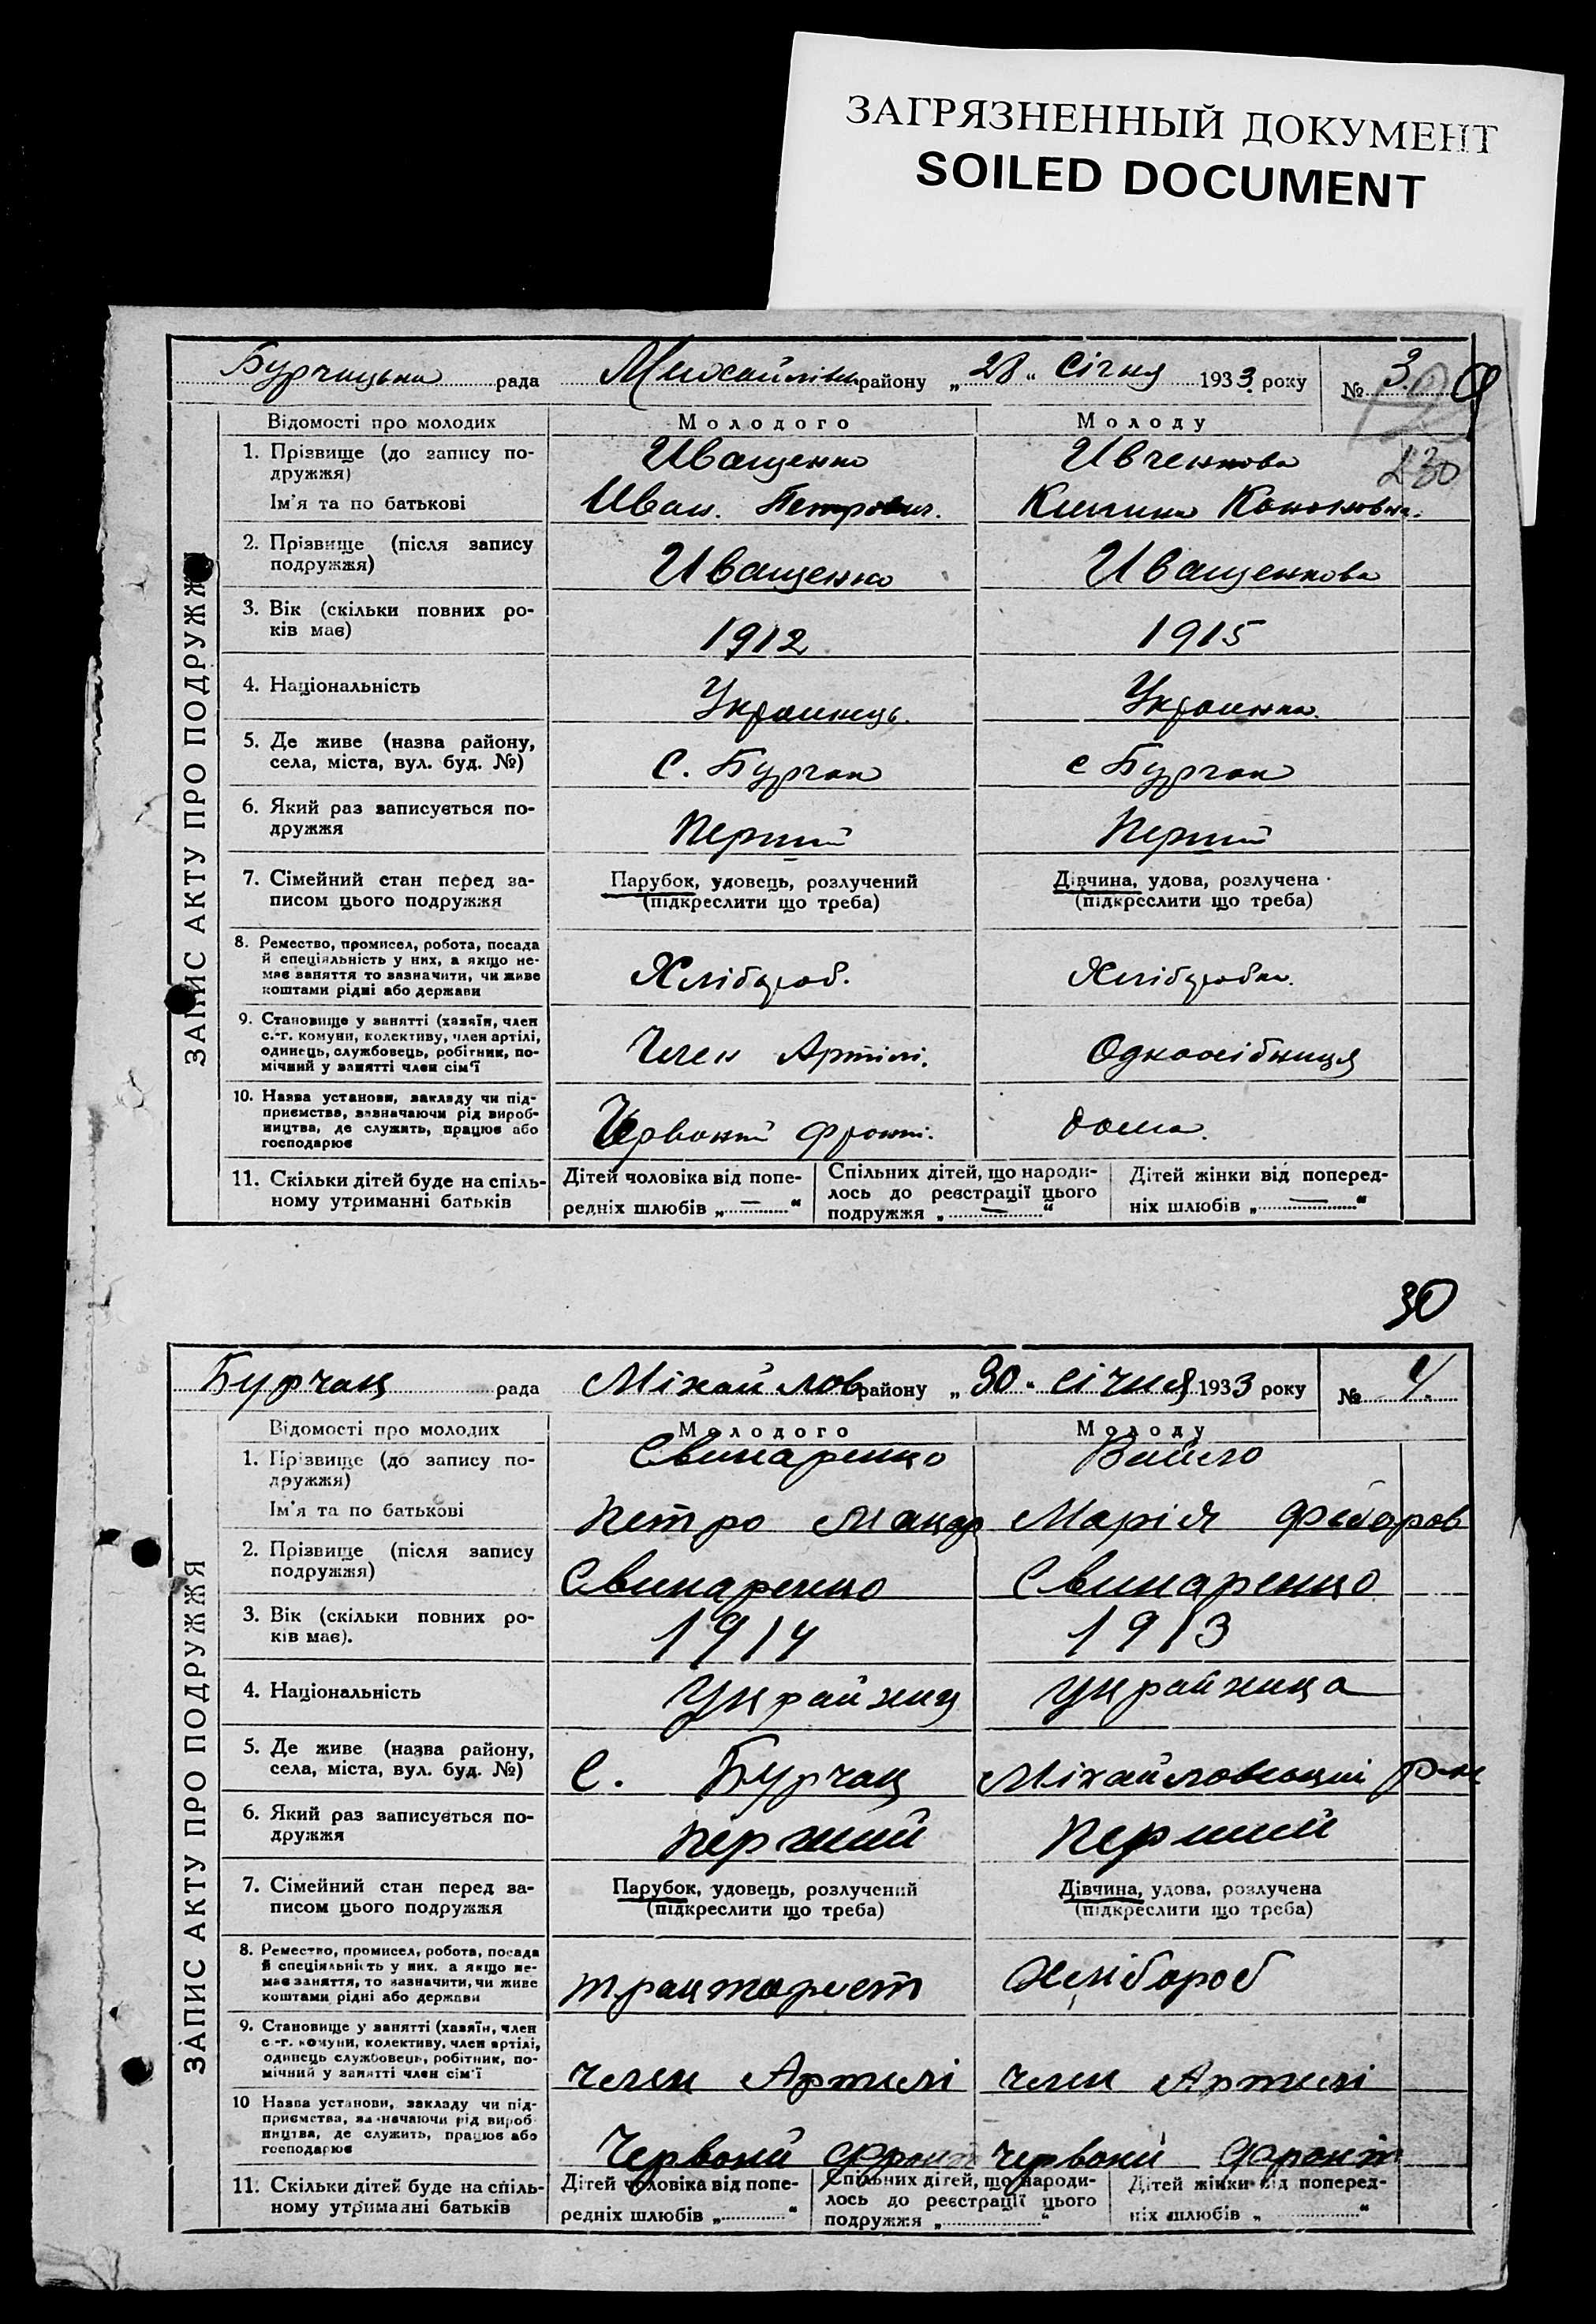 ЗАГРЯЗНЕННЫЙ ДОКУМЕНТ
SOILED DOCUMENT
ЗАПИС АКТУ ПРО ПОДРУЖЖЯ
Бурчацька рада Михайлівк району „28“ Січня 1933 року № 3.
Відомості про молодих Молодого Молоду
1. Прізвище (до запису по-
дружжя) Иващенко Ивченкова 230
Ім'я та по батькові Иван. Петрович. Килина Кононовна.
2. Прізвище (після запису
подружжя) Иващенко Иващенкова
3. Вік (скільки повних ро-
ків має) 1912 1915
4. Національність Украинець. Украинка.
5. Де живе (назва району,
села, міста, вул. буд. №) С. Бурчак с Бурчак
6. Який раз записується по-
дружжя Перший Перший
7. Сімейний стан перед за- Парубок, удовець, розлучений Дівчина, удова, розлучена
писом цього подружжя (підкреслити що треба) (підкреслити що треба)
8. Ремество, промисел, робота, посада
й спеціяльність у них, а якщо не-
має заняття то зазначити, чи живе
коштами рідні або держави Хлібороб. Хліборобка.
9. Становище у занятті (хазяїн, член
с.-г. комуни, колективу, член артілі,
одинець, службовець, робітник, по-
мічний у занятті член сім'ї Член Артілі. Одноосібниця
10. Назва установи, закладу чи під-
приємства, зазначаючи рід вироб-
ництва, де служить, працює або
господарює Червоний фронт. дома.
11. Скільки дітей буде на спіль- Дітей чоловіка від попе- Спільних дітей, що народи- Дітей жінки від поперед-
ному утриманні батьків редніх шлюбів „—“ лось до реєстрації цього ніх шлюбів „—“
подружжя „—“
30
ЗАПИС АКТУ ПРО ПОДРУЖЖЯ
Бурчац рада Міхайлов району „30“ січня 1933 року № 4.
Відомості про молодих Молодого Молоду
1. Прізвище (до запису по-
дружжя) Свинаренцо Вайло
Ім'я та по батькові Петро Макар Марія Федоров
2. Прізвище (після запису
подружжя) Свинаренцо Свинаренцо
3. Вік (скільки повних ро-
ків має). 1914 1913
4. Національність Українец українца
5. Де живе (назва району,
села, міста, вул. буд. №) С. Бурчац Міхайловсьций р-н
6. Який раз записується по-
дружжя перший перший
7. Сімейний стан перед за- Парубок, удовець, розлучений Дівчина, удова, розлучена
писом цього подружжя (підкреслити що треба) (підкреслити що треба)
8. Ремество, промисел, робота, посада
й спеціяльність у них, а якщо не-
має заняття, то зазначити, чи живе
коштами рідні або держави трацторист хлібороб
9. Становище у занятті (хазяїн, член
с.-г. комуни, колективу, член артілі,
одинець службовець, робітник, по-
мічний у занятті член сім'ї член Артилі член Артилі
10 Назва установи, закладу чи під-
приємства, зазначаючи рід вироб-
ництва, де служить, працює або
господарює Червоний фронт Червоний фронт
11. Скільки дітей буде на спіль- Дітей чоловіка від попе- Спільних дітей, що народи- Дітей жінки від поперед-
ному утриманні батьків редніх шлюбів „“ лось до реєстрації цього ніх шлюбів „“
подружжя „“